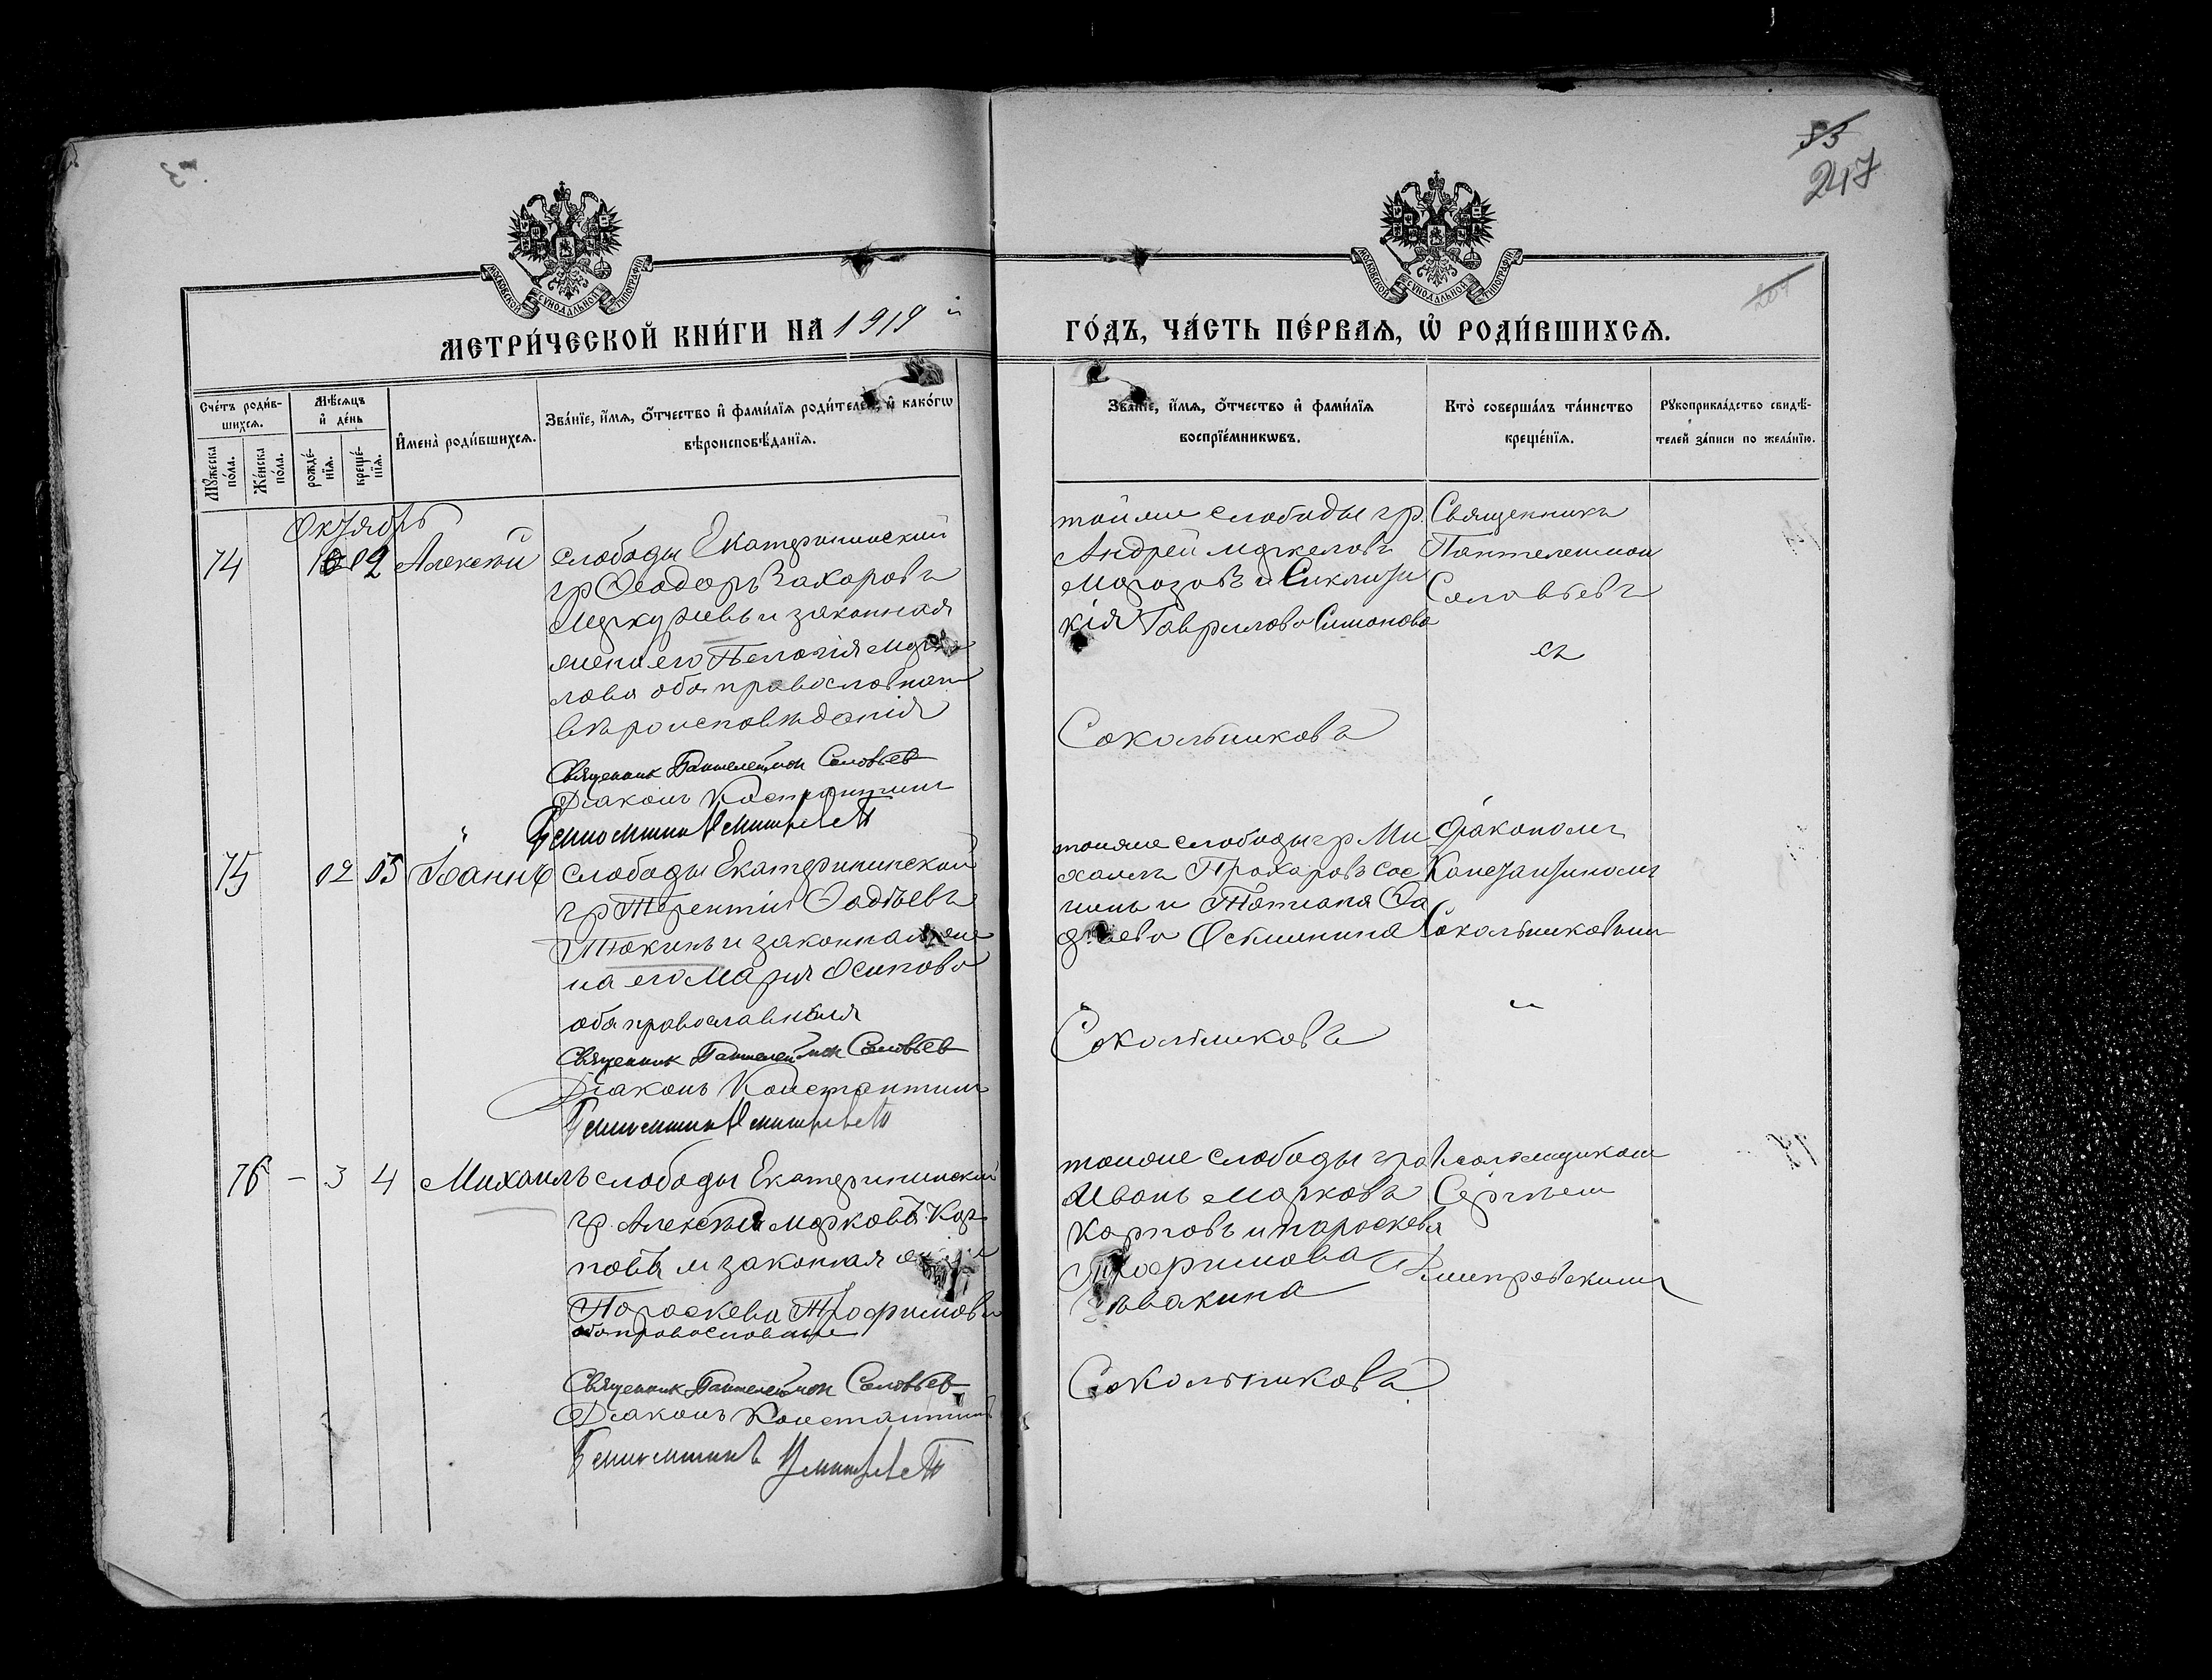 53
247
МЕТРИ́ЧЕСКОЙ КНИ́ГИ НА 1919 й
ГО́ДЪ, ЧА́СТЬ ПЕ́РВАѦ, Ѡ҆ РОДИ́ВШИХСѦ.
МОСКОВСКОЙ СѴНОДАЛЬНОЙ ТИПОГРАФІИ
МОСКОВСКОЙ СѴНОДАЛЬНОЙ ТИПОГРАФІИ
Сче́тъ роди́в-
шихсѧ.
Мꙋ́жеска по́ла.
Же́нска по́ла.
Мѣ́сѧцъ
и҆ де́нь
рожде́-
нїѧ.
креще́-
нїѧ.
И҆мена̀ роди́вшихсѧ.
Зва́нїе, и҆́мѧ, ѻ҆́тчество и҆ фами́лїѧ роди́телей, и҆ како́гѡ
вѣроисповѣ́данїѧ.
Зва́нїе, и҆́мѧ, ѻ҆́тчество и҆ фами́лїѧ
воспрїе́мникѡвъ.
Кто̀ соверша́лъ та́инство
креще́нїѧ.
Рꙋкоприкла́дство свидѣ́-
телей за́писи по жела́нїю.
Октябрь
74
2
Алексѣй
слободы Екатерининской
гр Ѳеодоръ Захаровъ
Меркурьевъ и законная
жена его Пелагія
лова оба православнаго
вѣроисповѣданія
Священник Пантелеймон Соловьев
Діаконъ Константинъ
тойже слободы гр.
Андрей Маркеловъ
Морозовъ и
кія Гаврилова Симонова
Сокольниковъ
Священникъ
Пантелеимон
Соловьевъ
75
02 03
Іоаннъ
слободы Екатерининской
гр Терентій Фадѣевъ
Токинъ и законная же
на его Марія Осипова
оба православныя
Священник Пантелеймон Соловьев
Діаконъ Константинъ
тойже слободы гр Ми
хаилъ Прохоровъ
и Татіана Фа
дѣева Оськинина
Сокольниковъ
Діакономъ
Константиномъ
Сокольниковымъ
76 – 3 4
Михаилъ
слободы Екатерининской
гр. Алексѣй Марковъ Кар
повъ и законная
Параскева Трофимова
оба православные
Священник Пантелеймон Соловьев
Діаконъ Константинъ
тойже слободы гр
Иванъ Марковъ
Карповъ и Параскева
Трофимова
Сокольниковъ
Псаломщиком
Сергѣем
Дмитровскимъ